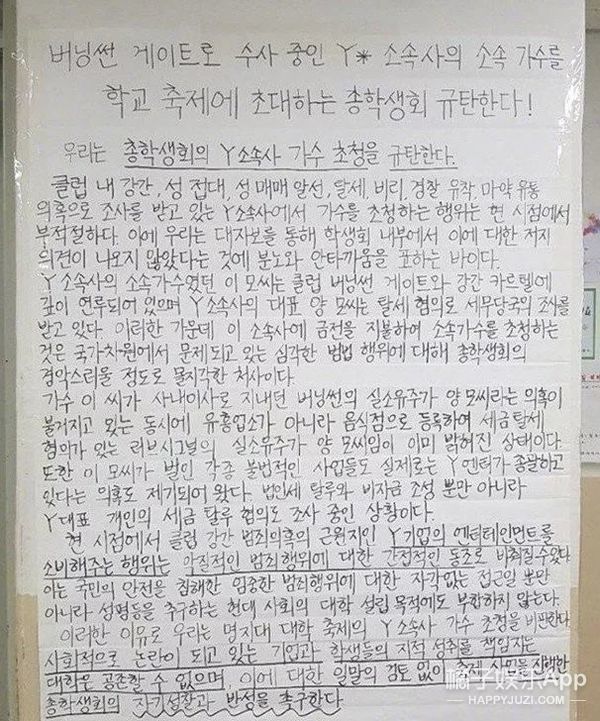 버닝썬 게이트로 수사 중인 Y* 소속사의 소속 가수를
학교 축제에 초대하는 총학생회 규탄한다!
우리는 총학생회의 Y소속사 가수 초청을 규탄한다.
클럽 내 강간, 성 접대, 성매매 알선, 탈세, 비리, 경찰 유착, 마약 유통
의혹으로 조사를 받고 있는 Y소속사에서 가수를 초청하는 행위는 현 시점에서
부적절하다. 이에 우리는 대자보를 통해 학생회 내부에서 이에 대한 저지
의견이 나오지 않았다는 것에 분노와 안타까움을 표하는 바이다.
Y소속사의 소속가수였던 이 모씨는 클럽 버닝썬 게이트와 강간 카르텔에
깊이 연루되어 있으며 Y소속사의 대표 양 모씨는 탈세 혐의로 세무당국의 조사를
받고 있다. 이러한 가운데 이 소속사에 금전을 지불하여 소속가수를 초청하는
것은 국가차원에서 문제되고 있는 심각한 범법 행위에 대해 총학생회의
경악스러울 정도로 몰지각한 처사이다.
가수 이 씨가 사내이사로 지내던 버닝썬의 실소유주가 양 모씨라는 의혹이
불거지고 있는 동시에 유흥업소가 아니라 음식점으로 등록하여 세금탈세
혐의가 있는 러브시그널의 실소유주가 양 모씨임이 이미 밝혀진 상태이다.
또한 이 모씨가 벌인 각종 불법적인 사업들도 실제로는 Y엔터가 총괄하고
있다는 의혹도 제기되어 왔다. 법인세 탈루와 비자금 조성 뿐만 아니라
Y대표 개인의 세금 탈루 혐의도 조사 중인 상황이다.
현 시점에서 클럽 강간 범죄의혹의 근원지인 Y기업의 엔터테인먼트를
소비해주는 행위는 악질적인 범죄행위에 대한 간접적인 동조로 비춰질 수 있다
이는 국민의 안전을 침해한 엄중한 범죄행위에 대한 자각없는 접근일 뿐만
아니라 성평등을 추구하는 현대 사회의 대학 설립 목적에도 부합하지 않는다.
이러한 이유로 우리는 명지대 대학 축제의 Y소속사 가수 초청을 비판한다
사회적으로 논란이 되고 있는 기업과 학생들의 지적 성취를 책임지는
대학은 공존할 수 없으며, 이에 대한 일말의 검토 없이 축제 라인업을
총학생회의 자기성찰과 반성을 촉구한다
橘子娱乐App
HAPPYJUZI.COM